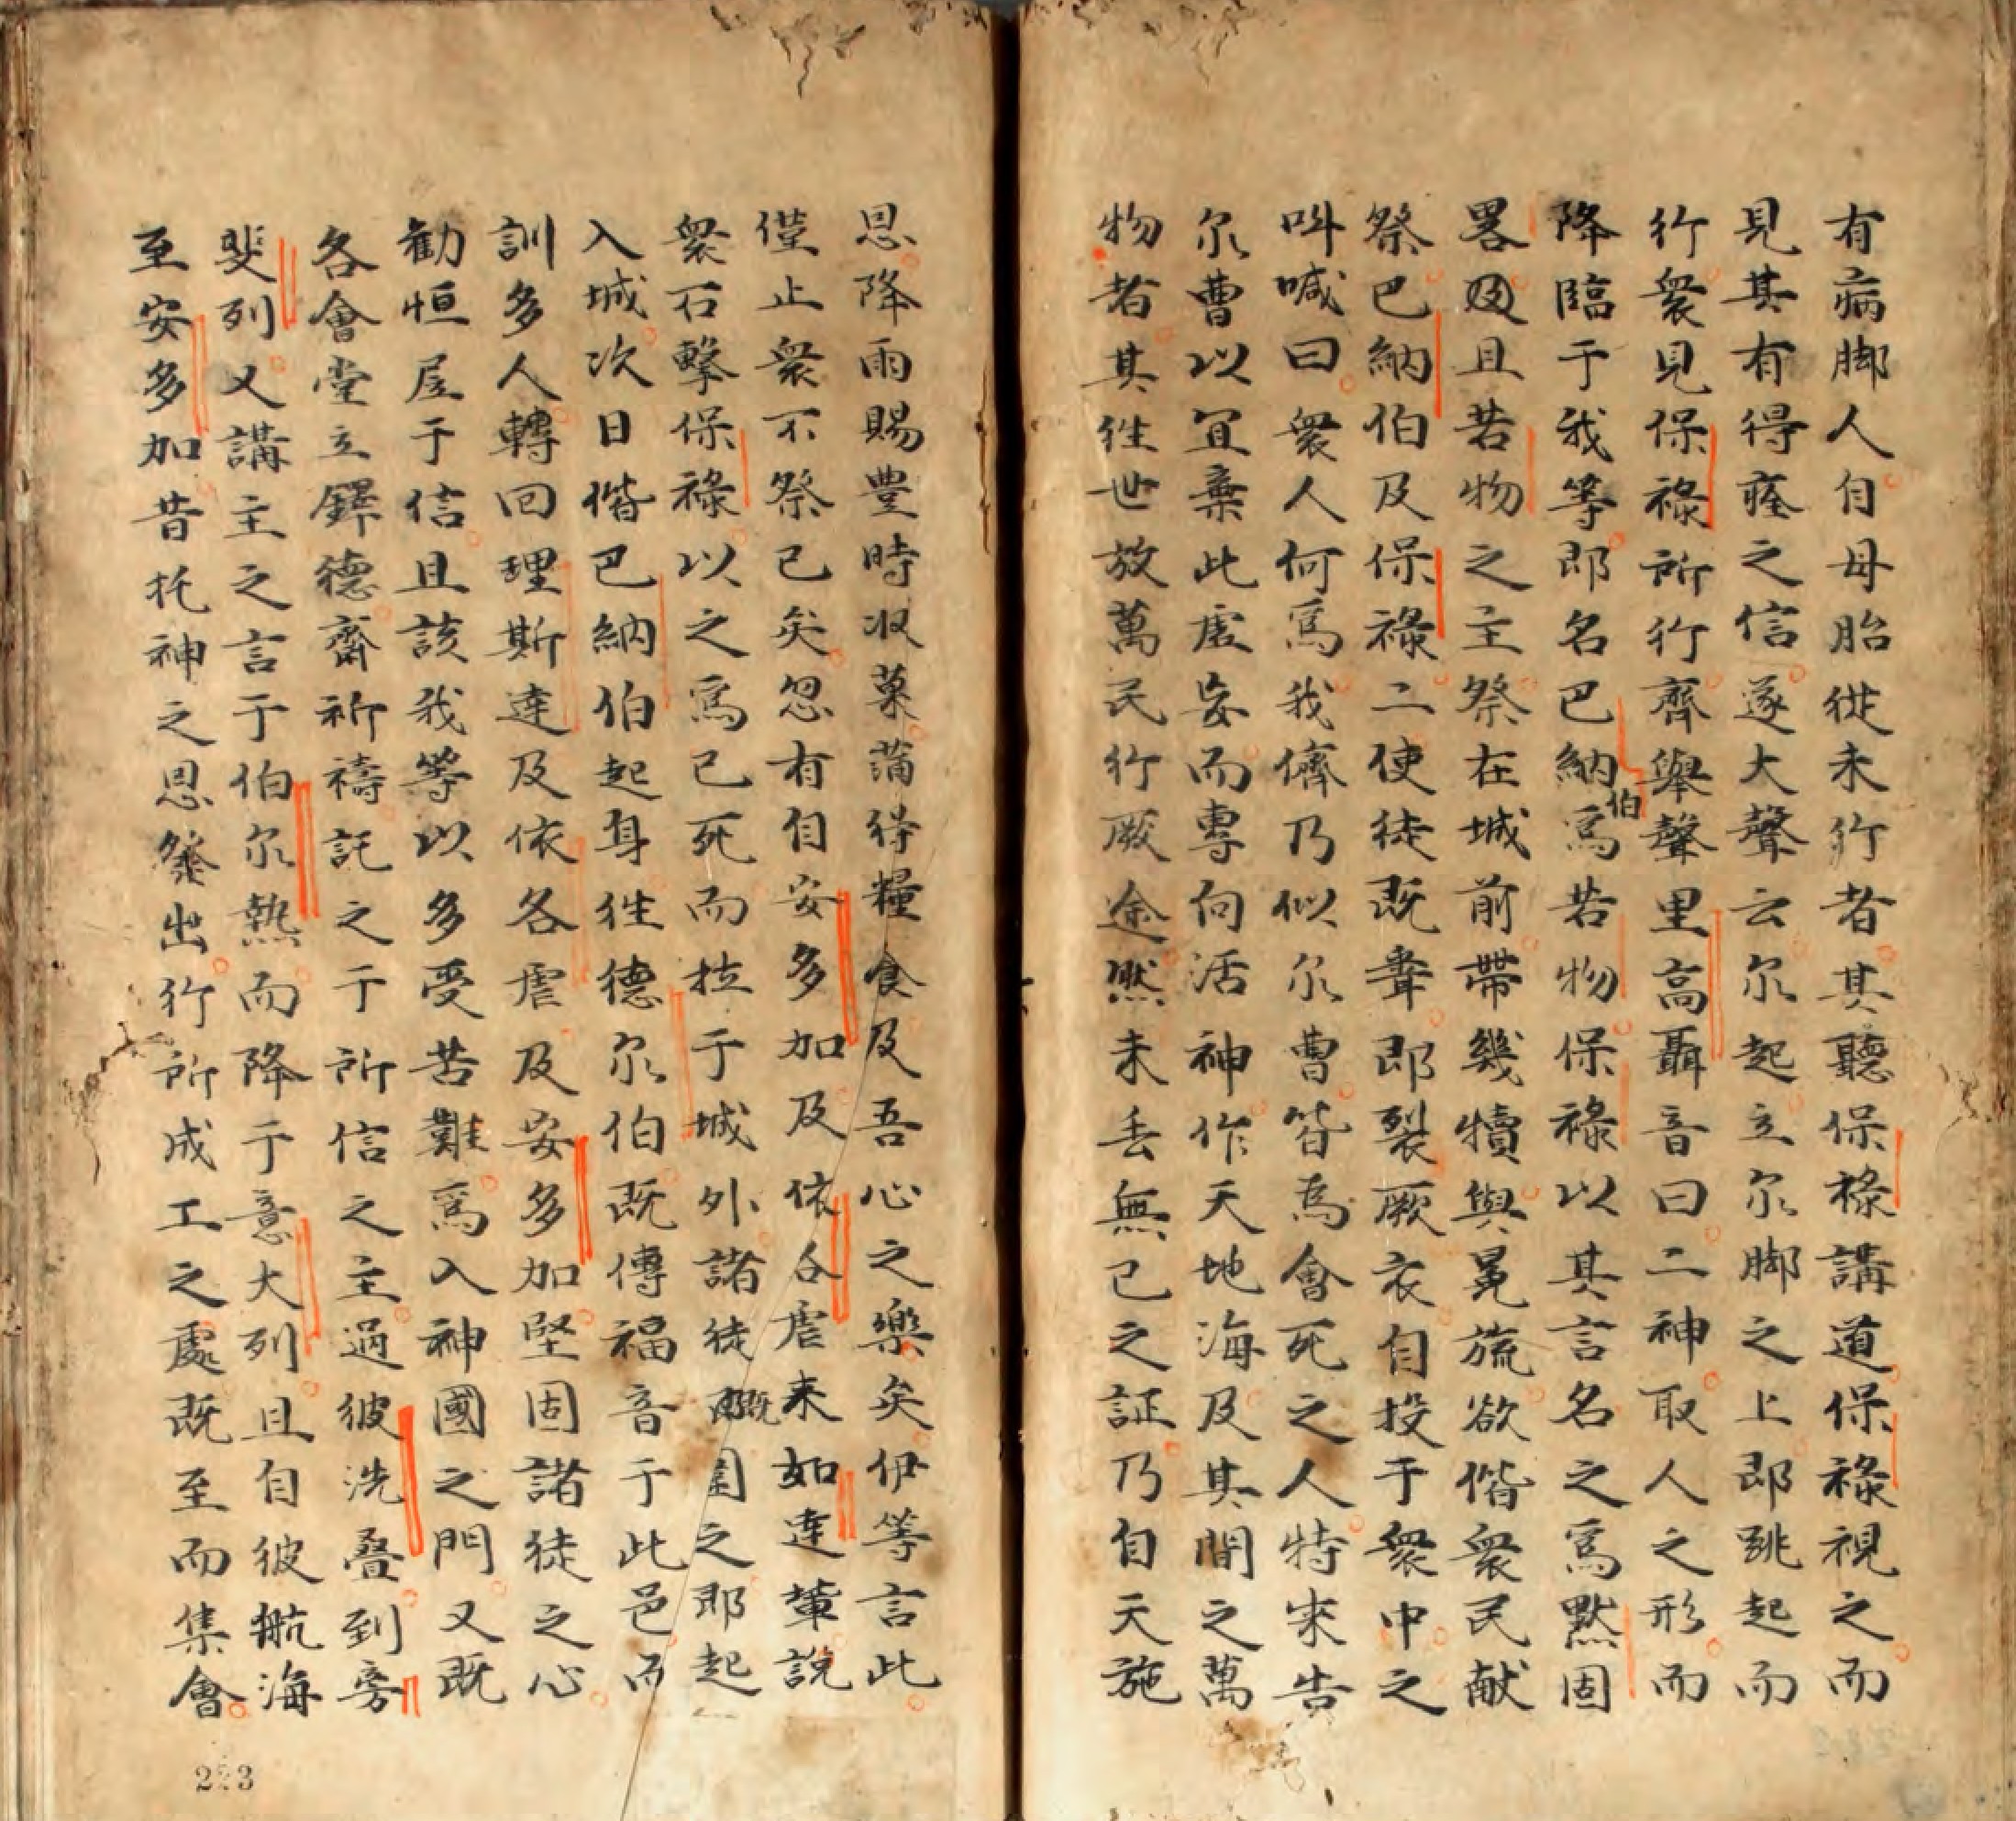 有病脚人自母胎從未行者其聽保祿講道保祿視之而
見其有得痊之信遂大聲云尔起立尔脚之上即跳起而
行衆見保祿所行齊舉聲里高聶音曰二神取人之形而
降臨于我等即名巴納伯爲若物保祿以其言名之爲默固
畧因且若物之主祭在城前帶幾犢與冕旒欲偕衆民献
祭巴納伯及保祿二使徒既聋即裂厥衣自投于衆中之
呌喊曰衆人何爲我儕乃似尔曹皆為會死之人特來告
尔曹以宜棄此虛妄而專向活神作天地海及其間之萬
物者其徃世放萬民行厥途然未丢無己之証乃自天施
恩降雨賜豐時収菓蒲得糧食及吾心之樂矣伊等言此
僅止衆不祭已矣忽有自安多加及依各虐来如達輩説
衆石擊保祿以之爲已死而拉于城外諸徒既圍之即起
入城次日偕巴納伯起身徃德尔伯既傳福音于此邑而
訓多人轉回理斯達及依各虐及安多加堅固諸徒之心
勸恒居于信且該我等以多受苦難爲入神國之門又既
各會堂立鐸德齋祈禱託之于所信之主過彼洗叠到旁
斐列又講主之言于伯尔熱而降于意大列且自彼航海
至安多加昔托神之恩發出行所成工之處既至而集會
223